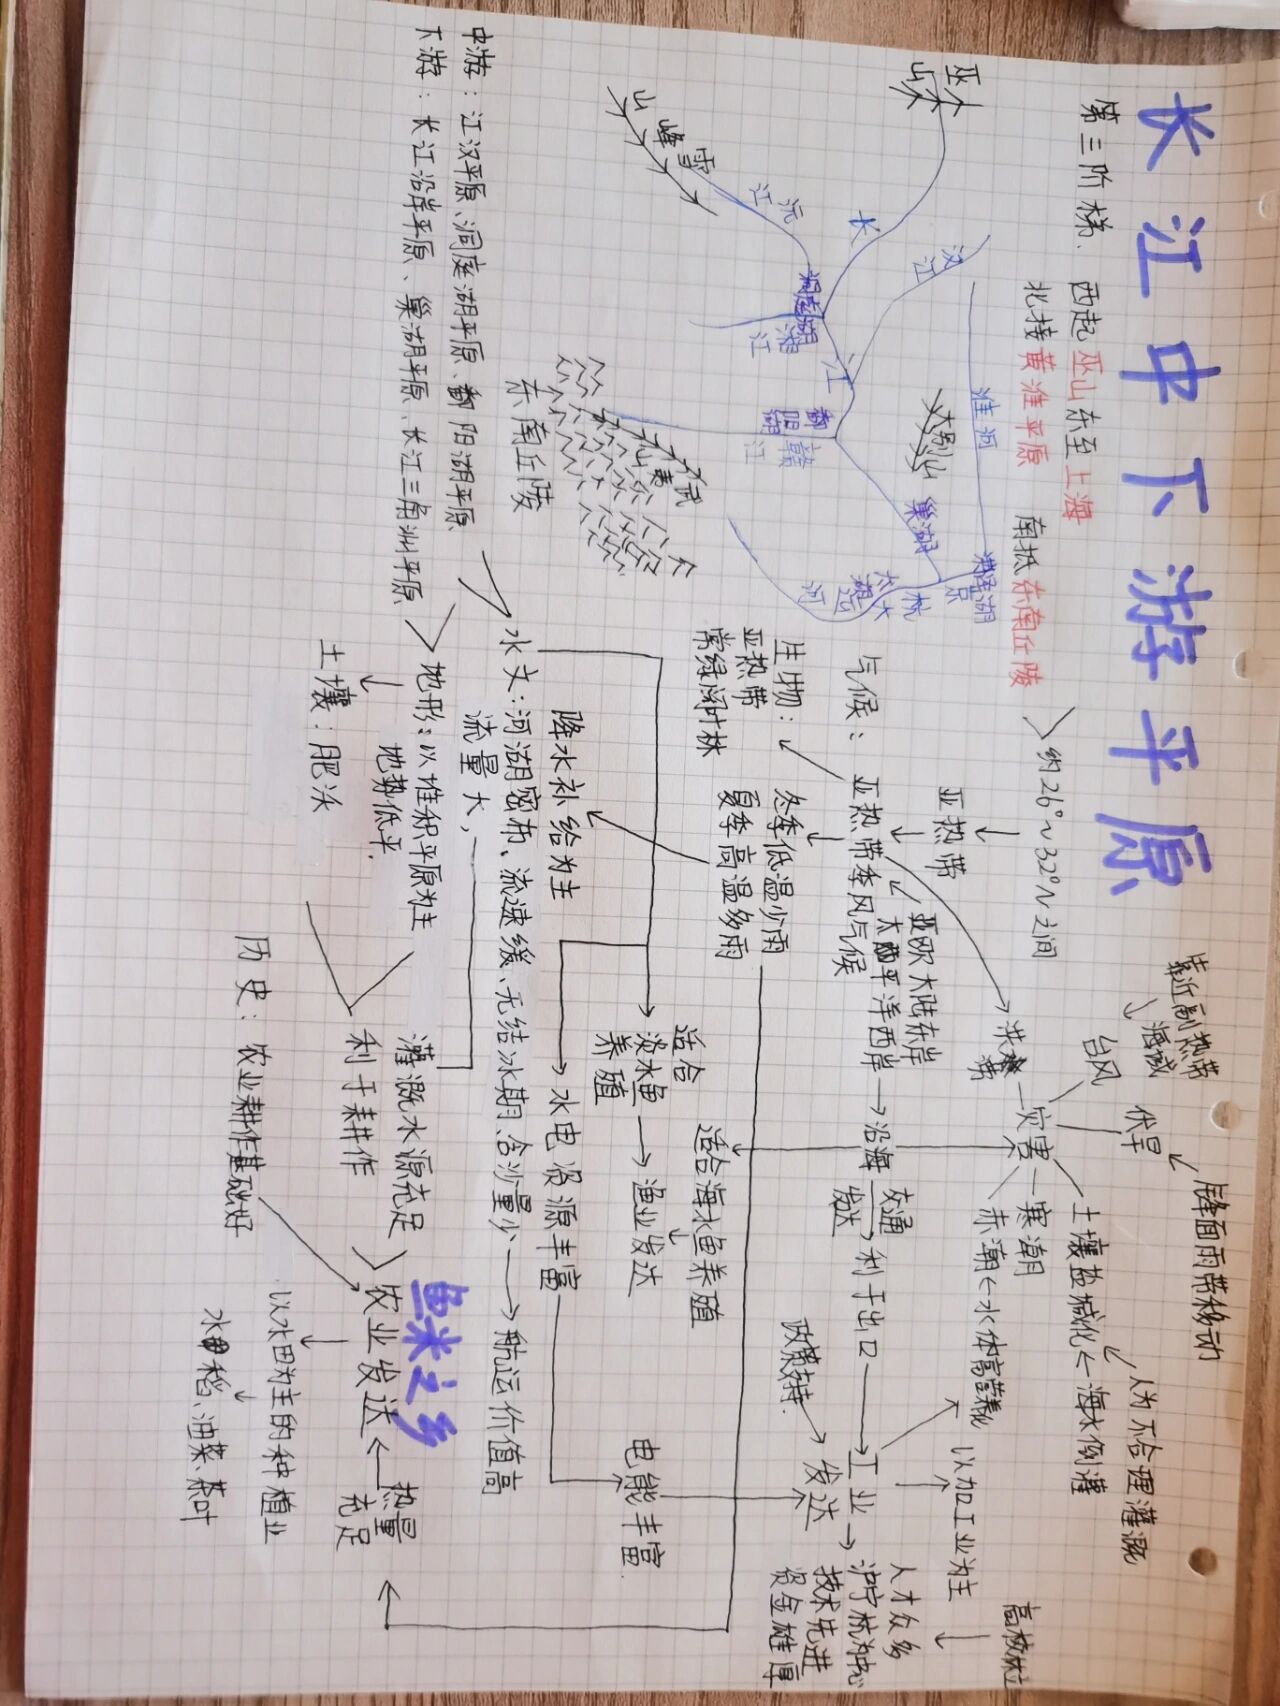 长江中下游平原
第三阶梯、西起巫山东至上海
北接黄淮平原 南抵东南丘陵
约26°N~32°N之间
亚热带
巫山
长
江
汉江
淮河
大别山
洪泽湖
巢湖
京
杭
大
运
河
太湖
洞庭湖
湘江
沅江
雪峰山
鄱阳湖
赣江
武夷山
东南丘陵
中游：江汉平原、洞庭湖平原、鄱阳湖平原
下游：长江沿岸平原、巢湖平原、长江三角洲平原
气候：亚热带季风气候
亚欧大陆东岸
太平洋西岸
冬季低温少雨
夏季高温多雨
生物：
亚热带
常绿阔叶林
降水补给为主
水文：河湖密布、流速缓、无结冰期、含沙量少
流量大，
航运价值高
地形：以堆积平原为主
地势低平.
土壤：肥沃
利于耕作
灌溉水源充足
历史：农业耕作基础好
农业发达
鱼米之乡
热量
充足
以水田为主的种植业
水稻、油菜、茶叶
适合
淡水鱼
养殖
渔业发达
适合海水鱼养殖
水电资源丰富
电能丰富.
沿海
交通
发达
利于出口
工业
发达
政策支持.
以加工业为主
人才众多
沪宁杭为中心
技术先进
资金雄厚
高校林立
灾害
洪涝
台风
靠近副热带
伏旱
锋面雨带移动
寒潮
赤潮←水体富营养化
土壤盐碱化←海水倒灌
人为不合理灌溉